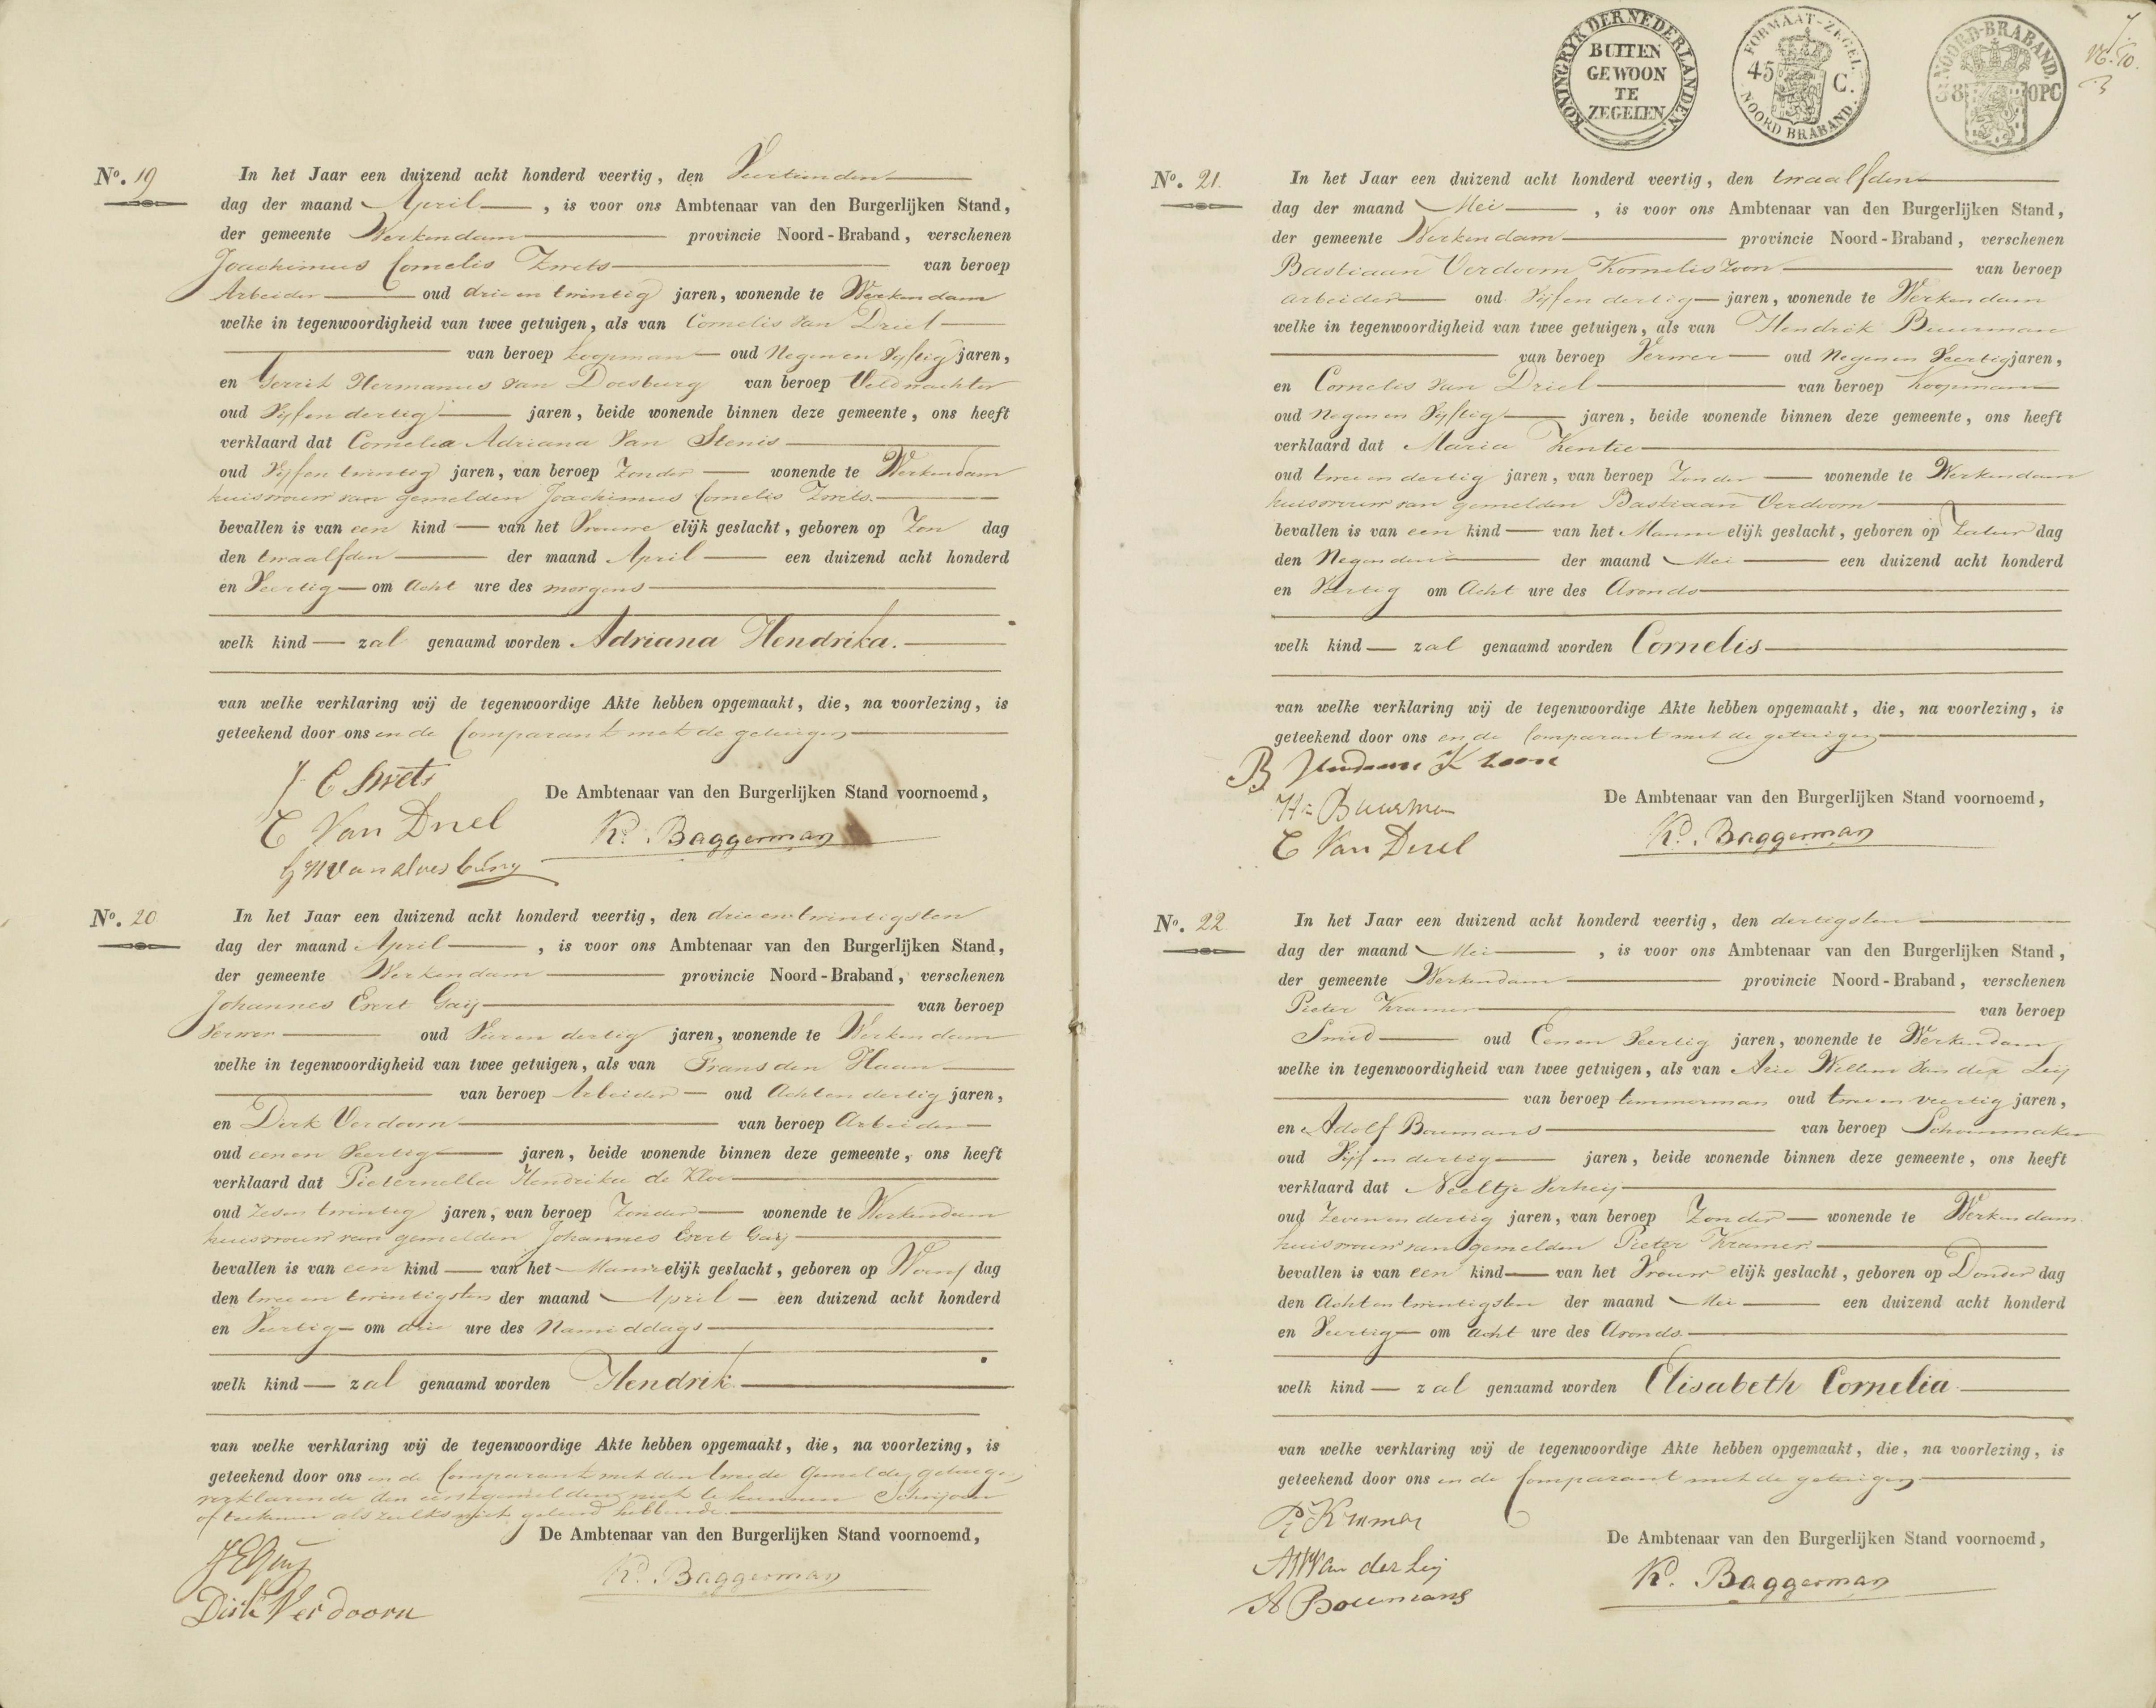 No. 19
In het Jaar een duizend acht honderd veertig, den Veertienden
dag der maand April, is voor ons Ambtenaar van den Burgerlijken Stand,
der gemeente Werkendam provincie Noord-Braband, verschenen
Joachimus Cornelis Zwets van beroep
Arbeider oud drie en twintig jaren, wonende te Werkendam
welke in tegenwoordigheid van twee getuigen, als van Cornelis van Driel
van beroep koopman oud Negen en Vyftig jaren,
en Gerrit Hermanus van Doesburg van beroep Veldwachter
oud Vyf en dertig jaren, beide wonende binnen deze gemeente, ons heeft
verklaard dat Cornelia Adriana van Stenis
oud Vyf en twintig jaren, van beroep Zonder wonende te Werkendam
huisvrouw van gemelden Joachimus Cornelis Zwets.
bevallen is van een kind van het Vrouwe elijk geslacht, geboren op Zon dag
den twaalfden der maand April een duizend acht honderd
en Veertig om Acht ure des morgens
welk kind zal genaamd worden Adriana Hendrika.
van welke verklaring wij de tegenwoordige Akte hebben opgemaakt, die, na voorlezing, is
geteekend door ons en de Comparant met de getuigen
J C Swets
De Ambtenaar van den Burgerlijken Stand voornoemd,
C Van Driel
Kd. Baggerman
G H Van doesburg
No. 20
In het Jaar een duizend acht honderd veertig, den drie en twintigsten
dag der maand April, is voor ons Ambtenaar van den Burgerlijken Stand,
der gemeente Werkendam provincie Noord-Braband, verschenen
Johannes Evert Gaij van beroep
Verwer oud Vier en dertig jaren, wonende te Werkendam
welke in tegenwoordigheid van twee getuigen, als van Frans den Haan
van beroep Arbeider oud Acht en dertig jaren,
en Dirk Verdoorn van beroep Arbeider
oud een en Veertig jaren, beide wonende binnen deze gemeente, ons heeft
verklaard dat Pieternella Hendrika de Kloe
oud Zes en twintig jaren, van beroep Zonder wonende te Werkendam
huisvrouw van gemelden Johannes Evert Gaij
bevallen is van een kind van het Manne elijk geslacht, geboren op Woens dag
den twee en twintigsten der maand April een duizend acht honderd
en Veertig om drie ure des Namiddags
welk kind zal genaamd worden Hendrik.
van welke verklaring wij de tegenwoordige Akte hebben opgemaakt, die, na voorlezing, is
geteekend door ons en de Comparant met den tweede Gemelde getuige,
verklarende den eerstgemelden niet te kunnen Schrijven
of teekenen als zulks niet geleerd hebbende.
De Ambtenaar van den Burgerlijken Stand voornoemd,
J E Gaij
Kd. Baggerman
Dirk Verdoorn
KONINGRYK DER NEDERLANDEN
BUITEN
GEWOON
TE
ZEGELEN
FORMAAT-ZEGEL
45 C.
NOORD BRABAND.
NOORD-BRABAND.
38 OPC
No. 21.
In het Jaar een duizend acht honderd veertig, den twaalfden
dag der maand Mei, is voor ons Ambtenaar van den Burgerlijken Stand,
der gemeente Werkendam provincie Noord-Braband, verschenen
Bastiaan Verdoorn Korneliszoon van beroep
arbeider oud Vijf en dertig jaren, wonende te Werkendam
welke in tegenwoordigheid van twee getuigen, als van Hendrik Buurman
van beroep Verwer oud Negen en Veertig jaren,
en Cornelis van Driel van beroep Koopman
oud Negen en Vyftig jaren, beide wonende binnen deze gemeente, ons heeft
verklaard dat Maria Kentie
oud twee en dertig jaren, van beroep Zonder wonende te Werkendam
huisvrouw van gemelden Bastiaan Verdoorn
bevallen is van een kind van het Manne elijk geslacht, geboren op Zatur dag
den Negenden der maand Mei een duizend acht honderd
en Veertig om Acht ure des Avonds
welk kind zal genaamd worden Cornelis
van welke verklaring wij de tegenwoordige Akte hebben opgemaakt, die, na voorlezing, is
geteekend door ons en de Comparant met de getuigen
B Verdoorn K zoon
De Ambtenaar van den Burgerlijken Stand voornoemd,
Hk Buurman
Kd. Baggerman
C Van Driel
No. 22
In het Jaar een duizend acht honderd veertig, den dertigsten
dag der maand Mei, is voor ons Ambtenaar van den Burgerlijken Stand,
der gemeente Werkendam provincie Noord-Braband, verschenen
Pieter Kramer van beroep
Smid oud Een en Veertig jaren, wonende te Werkendam
welke in tegenwoordigheid van twee getuigen, als van Arie Willem van der Leij
van beroep timmerman oud twee en veertig jaren,
en Adolf Boumans van beroep Schoenmaker
oud Vijf en dertig jaren, beide wonende binnen deze gemeente, ons heeft
verklaard dat Neeltje Verheij
oud Zeven en dertig jaren, van beroep Zonder wonende te Werkendam
huisvrouw van gemelden Pieter Kramer.
bevallen is van een kind van het Vrouw elijk geslacht, geboren op Donder dag
den Acht en twintigsten der maand Mei een duizend acht honderd
en Veertig om acht ure des Avonds.
welk kind zal genaamd worden Elisabeth Cornelia
van welke verklaring wij de tegenwoordige Akte hebben opgemaakt, die, na voorlezing, is
geteekend door ons en de Comparant met de getuigen
Pr Kramer
De Ambtenaar van den Burgerlijken Stand voornoemd,
A W Van der Leij
Kd. Baggerman
A Boumans